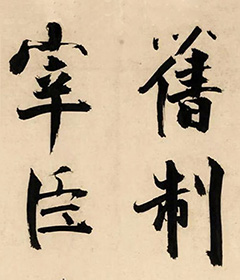 舊制
宰臣